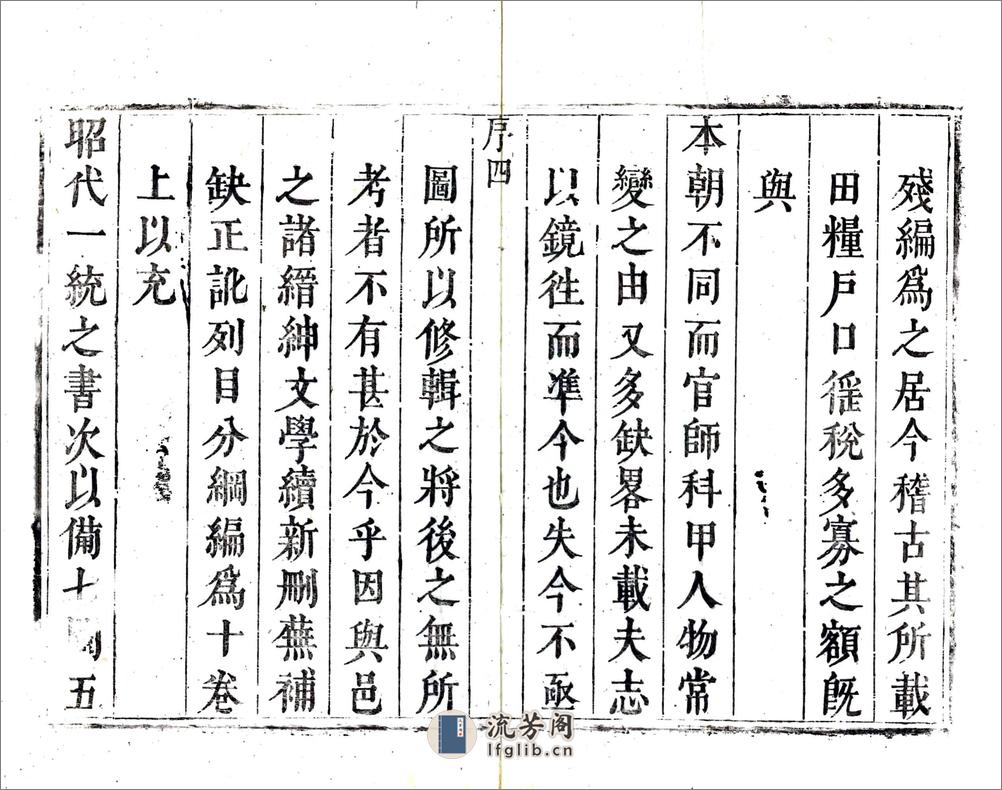 殘編爲之居今稽古其所載
田糧戶口徭稅多寡之額旣
與
本朝不同而官師科甲人物常
變之由又多缺畧未載夫志
以鏡徃而凖今也失今不亟
序四
圖所以修輯之將後之無所
考者不有甚於今乎因與邑
之諸縉紳文學續新刪蕪補
缺正訛列目分綱編爲十卷
上以充
昭代一統之書次以備十五
流芳阁
lfglib.cn